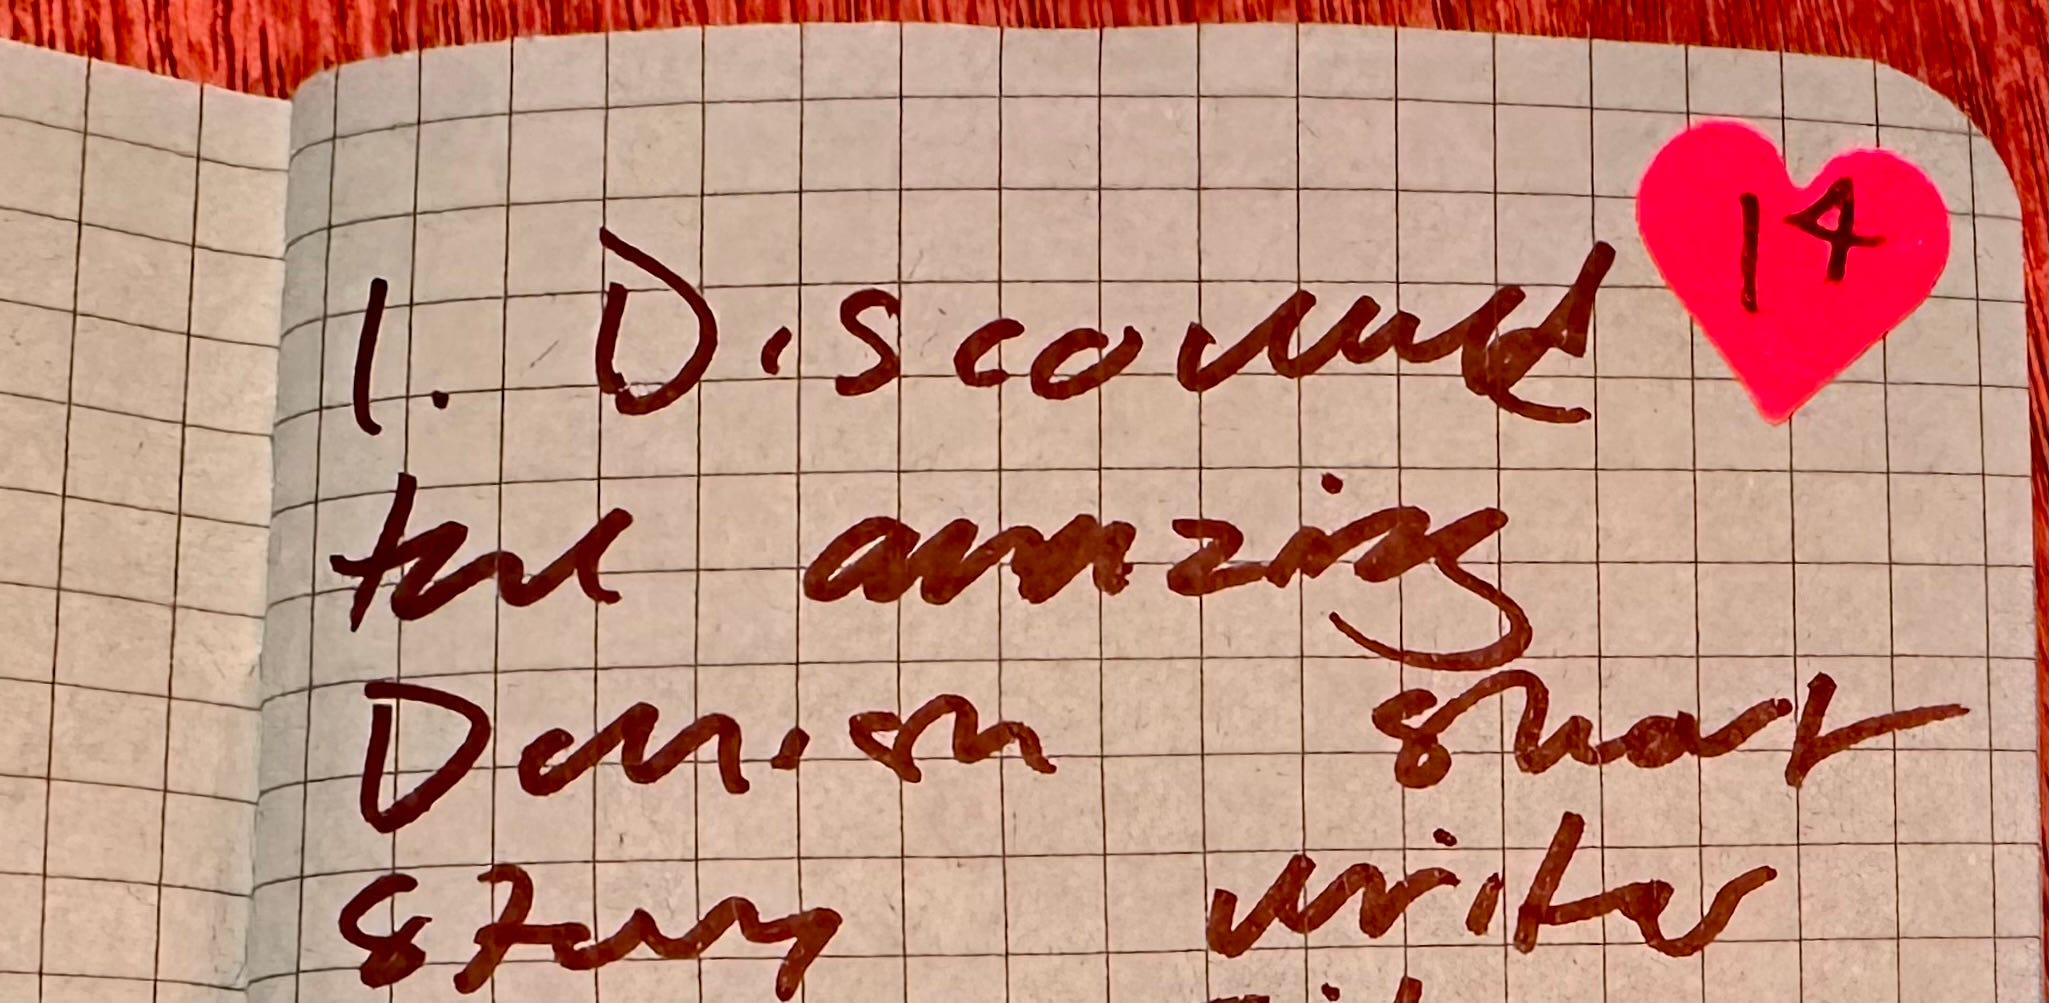 14
1. Discovered
the amazing
Danish short
story writer